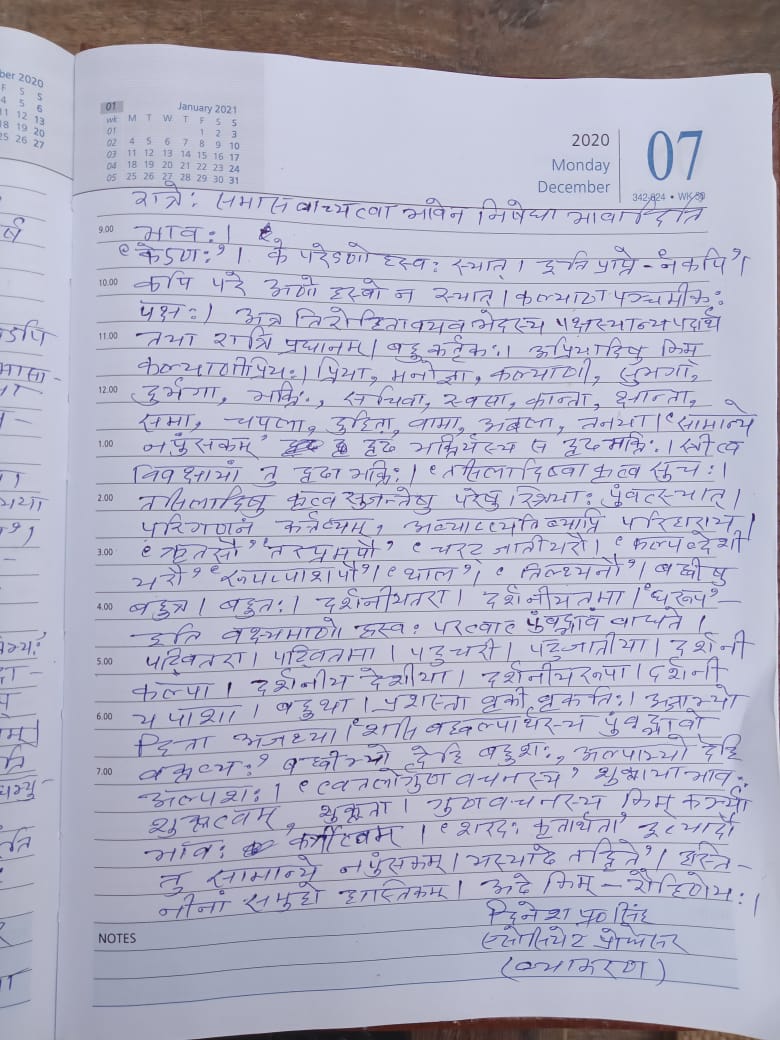 ber 2020
F S S
4 5 6
11 12 13
18 19 20
25 26 27
01 January 2021
wk M T W T F S S
01 1 2 3
02 4 5 6 7 8 9 10
03 11 12 13 14 15 16 17
04 18 19 20 21 22 23 24
05 25 26 27 28 29 30 31
2020
Monday
December
07
342-024 • WK 50
रात्रेः समासवाच्यत्वाभावेन निषेधाभावादिति
9.00 भावः।
"केऽणः"। के परेऽणो ह्रस्वः स्यात्। इति प्राप्ते - न कपि"।
10.00 कपि परे अणो ह्रस्वो न स्यात्। कल्याणपञ्चमीकः
पक्षः। अत्र तिरोहितावयवभेदस्य पक्षस्यान्यपदार्थ
11.00 तया रात्रि प्रधानम्। बहुकर्तृकः। अप्रियादिषु किम्
कल्याणीप्रियः। प्रिया, मनोज्ञा, कल्याणी, सुभगा,
12.00 दुर्भगा, भक्तिः, सचिवा, स्वसा, कान्ता, क्षान्ता,
समा, चपला, दुहिता, वामा, अबला, तनया। "सामान्ये
1.00 नपुंसकम्" दृढं भक्तिर्यस्य स दृढभक्तिः। स्त्रीत्व
विवक्षायां तु दृढाभक्तिः। "तसिलादिष्वाकृत्वसुचः।
2.00 तसिलादिषु कृत्वसुजन्तेषु परेषु स्त्रियाः पुंवत्स्यात्।
परिगणनं कर्त्तव्यम्, अव्याप्त्यतिव्याप्ति परिहाराय।
3.00 "त्रतसौ" "तरप्तमपौ" "चरट् जातीयरौ। "कल्पब्देशी
यरौ" "रूपप्पाशपौ"। "थाल्"। "तिल्थ्यनौ"। बह्वीषु
4.00 बहुत्र। बहुतः। दर्शनीयतरा। दर्शनीयतमा। "घरूप" -
इति वक्ष्यमाणो ह्रस्वः परत्वात् पुंवद्भावं बाधते।
5.00 पट्वितरा। पट्वितमा। पटुचरी। पटुजातीया। दर्शनी
कल्पा। दर्शनीय देशीया। दर्शनीयरूपा। दर्शनी
6.00 य पाशा। बहुथा। प्रशस्ता वृकी वृकतिः। अजाभ्यो
हिता अजथ्या। "शसि बह्वल्पार्थस्य पुंवद्भावो
7.00 वक्तव्यः" बह्वीभ्यो देहि बहुशः, अल्पाभ्यो देहि
अल्पशः। "त्वतलोर्गुणवचनस्य" शुक्लाया भावः
शुक्लत्वम्, शुक्लता। गुणवचनस्य किम् कर्त्र्या
भावः कर्त्रीत्वम्। "शरदः कृतार्थता" इत्यादौ
तु सामान्ये नपुंसकम्। भस्याढे तद्धिते"। हस्ति -
नीनां समूहो हास्तिकम्। अढे किम् - रौहिणेयः।
दिनेश प्र० सिंह
NOTES एसोसियेट प्रोफेसर
(व्याकरण)